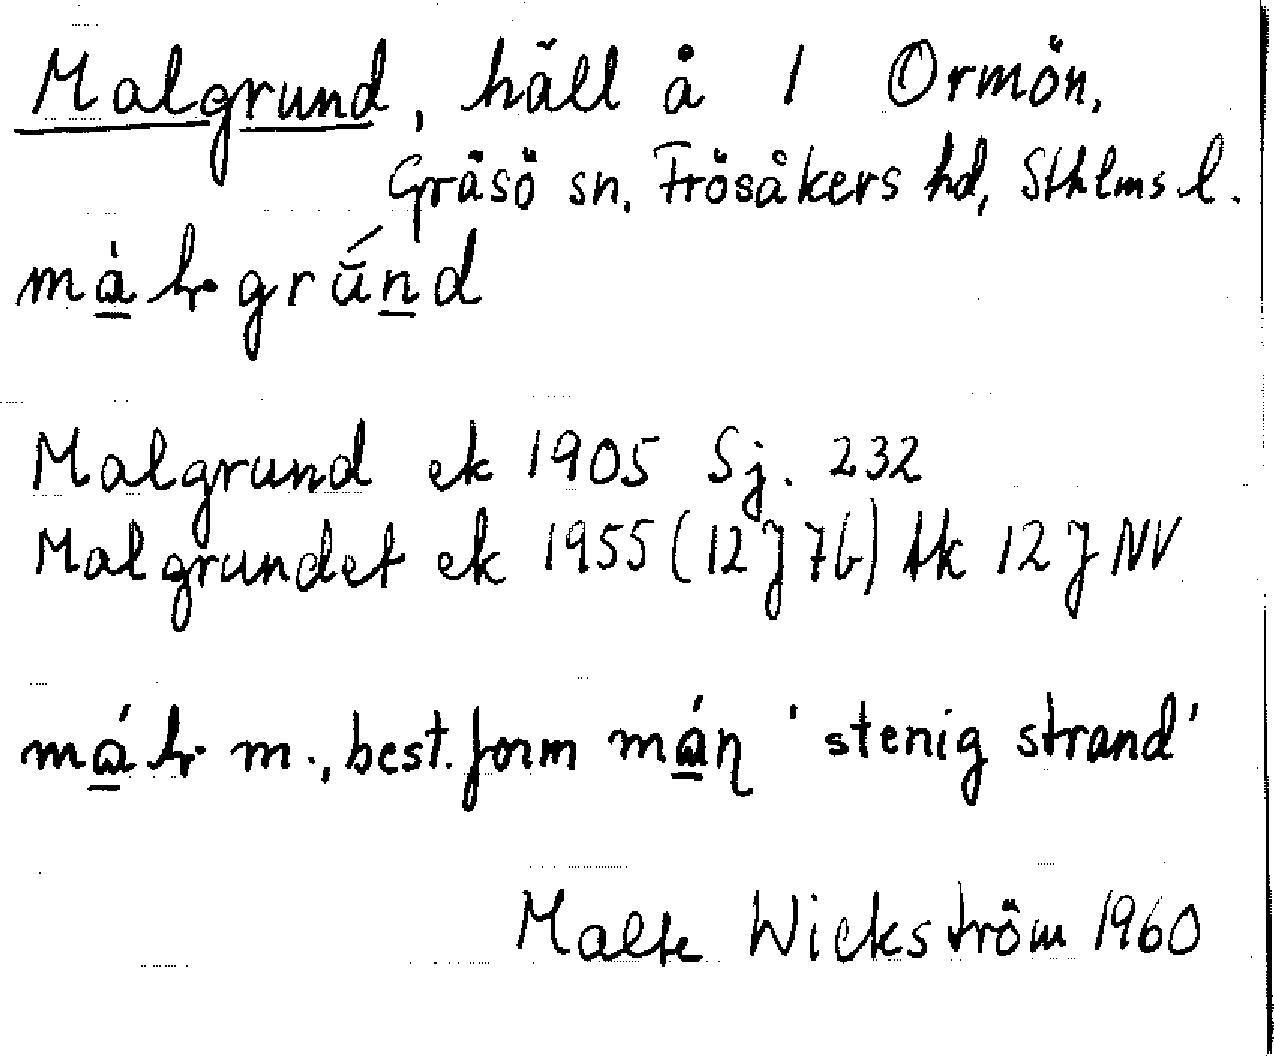 Malgrund, häll å 1 Ormön,
Gräsö sn, Frösåkers hd, Sthlms l.
Malgrund ek 1905 Sj. 232
Malgrundet ek 1955 (12 J 7b) tk 12 J NV
m., best. form 'stenig strand'
Malte Wickström 1960